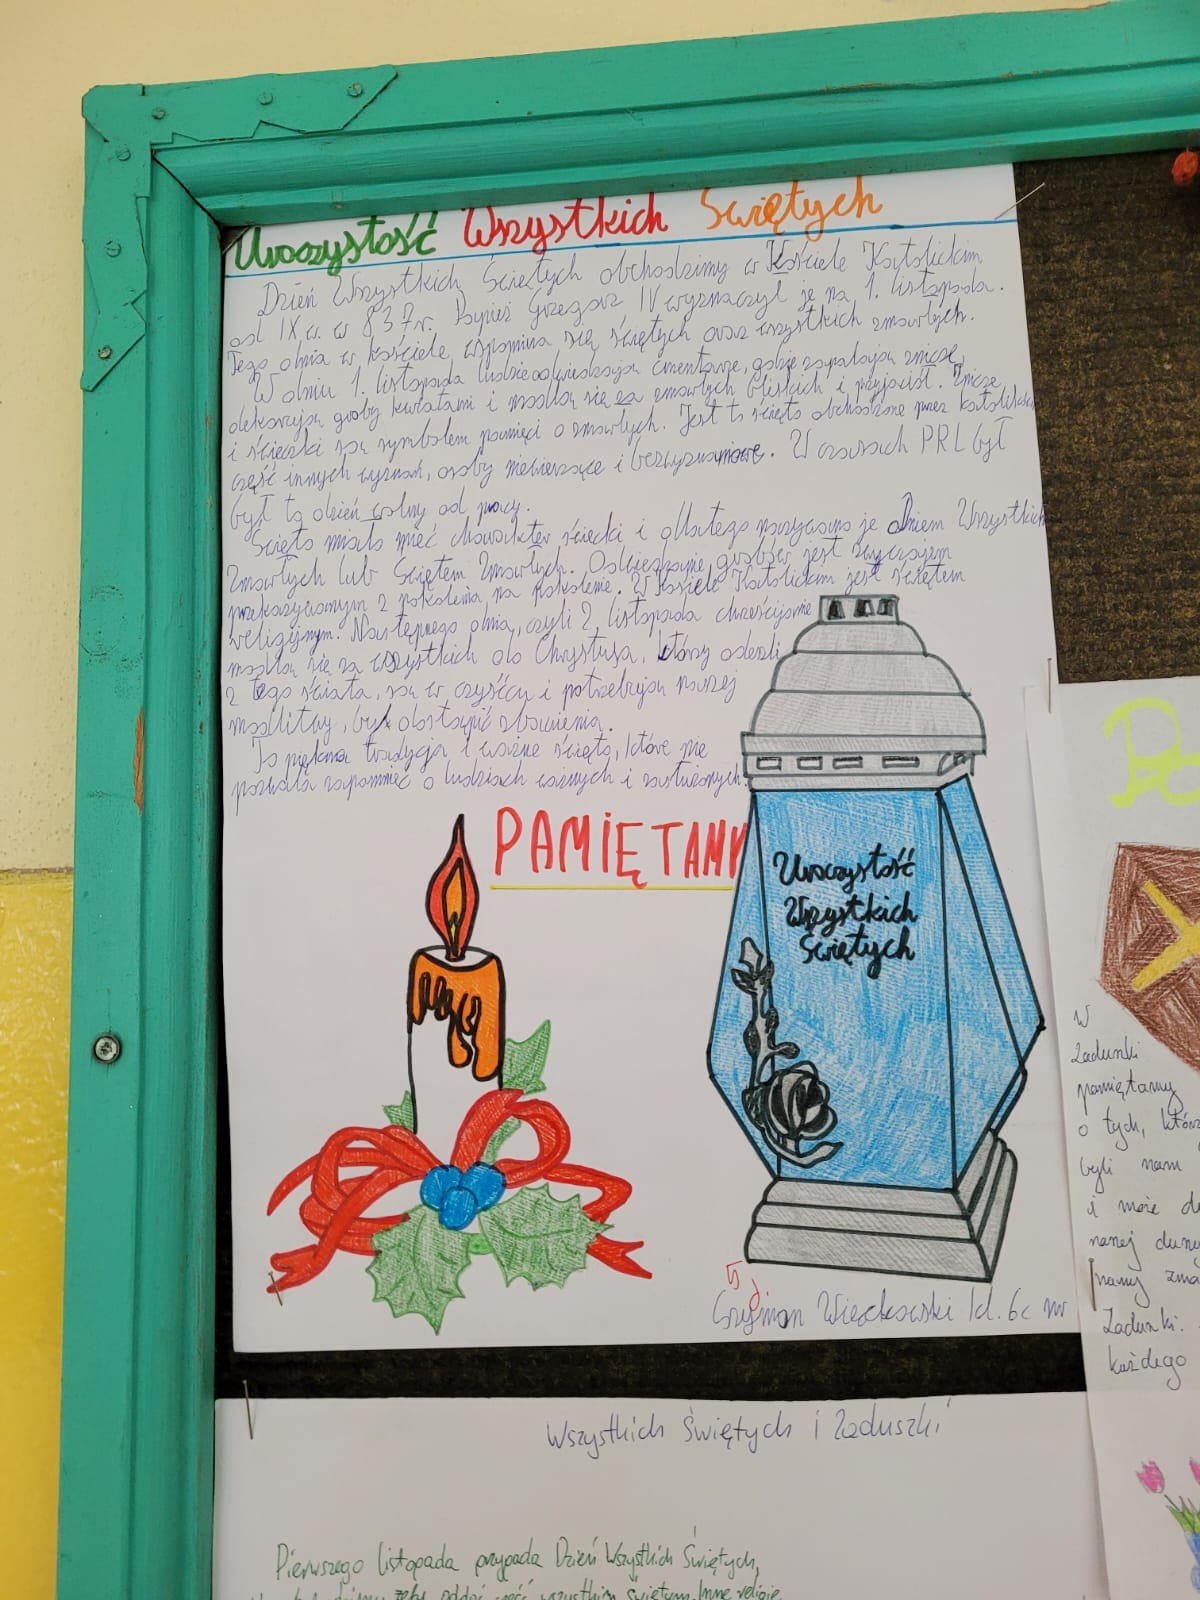 Uroczystość Wszystkich Świętych
Dzień Wszystkich Świętych obchodzimy w Kościele Katolickim
od IX w. w 837r. Papież Grzegorz IV wyznaczył je na 1. listopada.
Tego dnia w kościele wspomina się świętych oraz wszystkich zmarłych.
W dniu 1. listopada ludzie odwiedzają cmentarze, gdzie zapalają znicze,
dekorują groby kwiatami i modlą się za zmarłych bliskich i przyjaciół. Znicze
i świeczki są symbolem pamięci o zmarłych. Jest to święto obchodzone przez katolików
część innych wyznań, osoby niewierzące i bezwyznaniowe. W czasach PRL był
był to dzień wolny od pracy.
Święto miało mieć charakter świecki i dlatego nazywano je Dniem Wszystkich
Zmarłych lub Świętem Zmarłych. Odwiedzanie grobów jest zwyczajem
przekazywanym z pokolenia na pokolenie. W Kościele Katolickim jest świętem
religijnym. Następnego dnia, czyli 2. listopada chrześcijanie
modlą się za wszystkich do Chrystusa, którzy odeszli
z tego świata, są w czyśćcu i potrzebują naszej
modlitwy, by dostąpić zbawienia.
To piękna tradycja i ważne święto, które nie
pozwala zapomnieć o ludziach ważnych i zasłużonych.
PAMIĘTAMY
Uroczystość
Wszystkich
Świętych
Szymon Wieczkowski kl. 6c nr
W
Zaduszki
pamiętamy
o tych, którz
byli nam
i może du
naszej
mamy zma
Zaduszki.
każdego
Wszystkich Świętych i Zaduszki
Pierwszego listopada przypada Dzień Wszystkich Świętych,
żeby oddać cześć wszystkim świętym. Inne religie